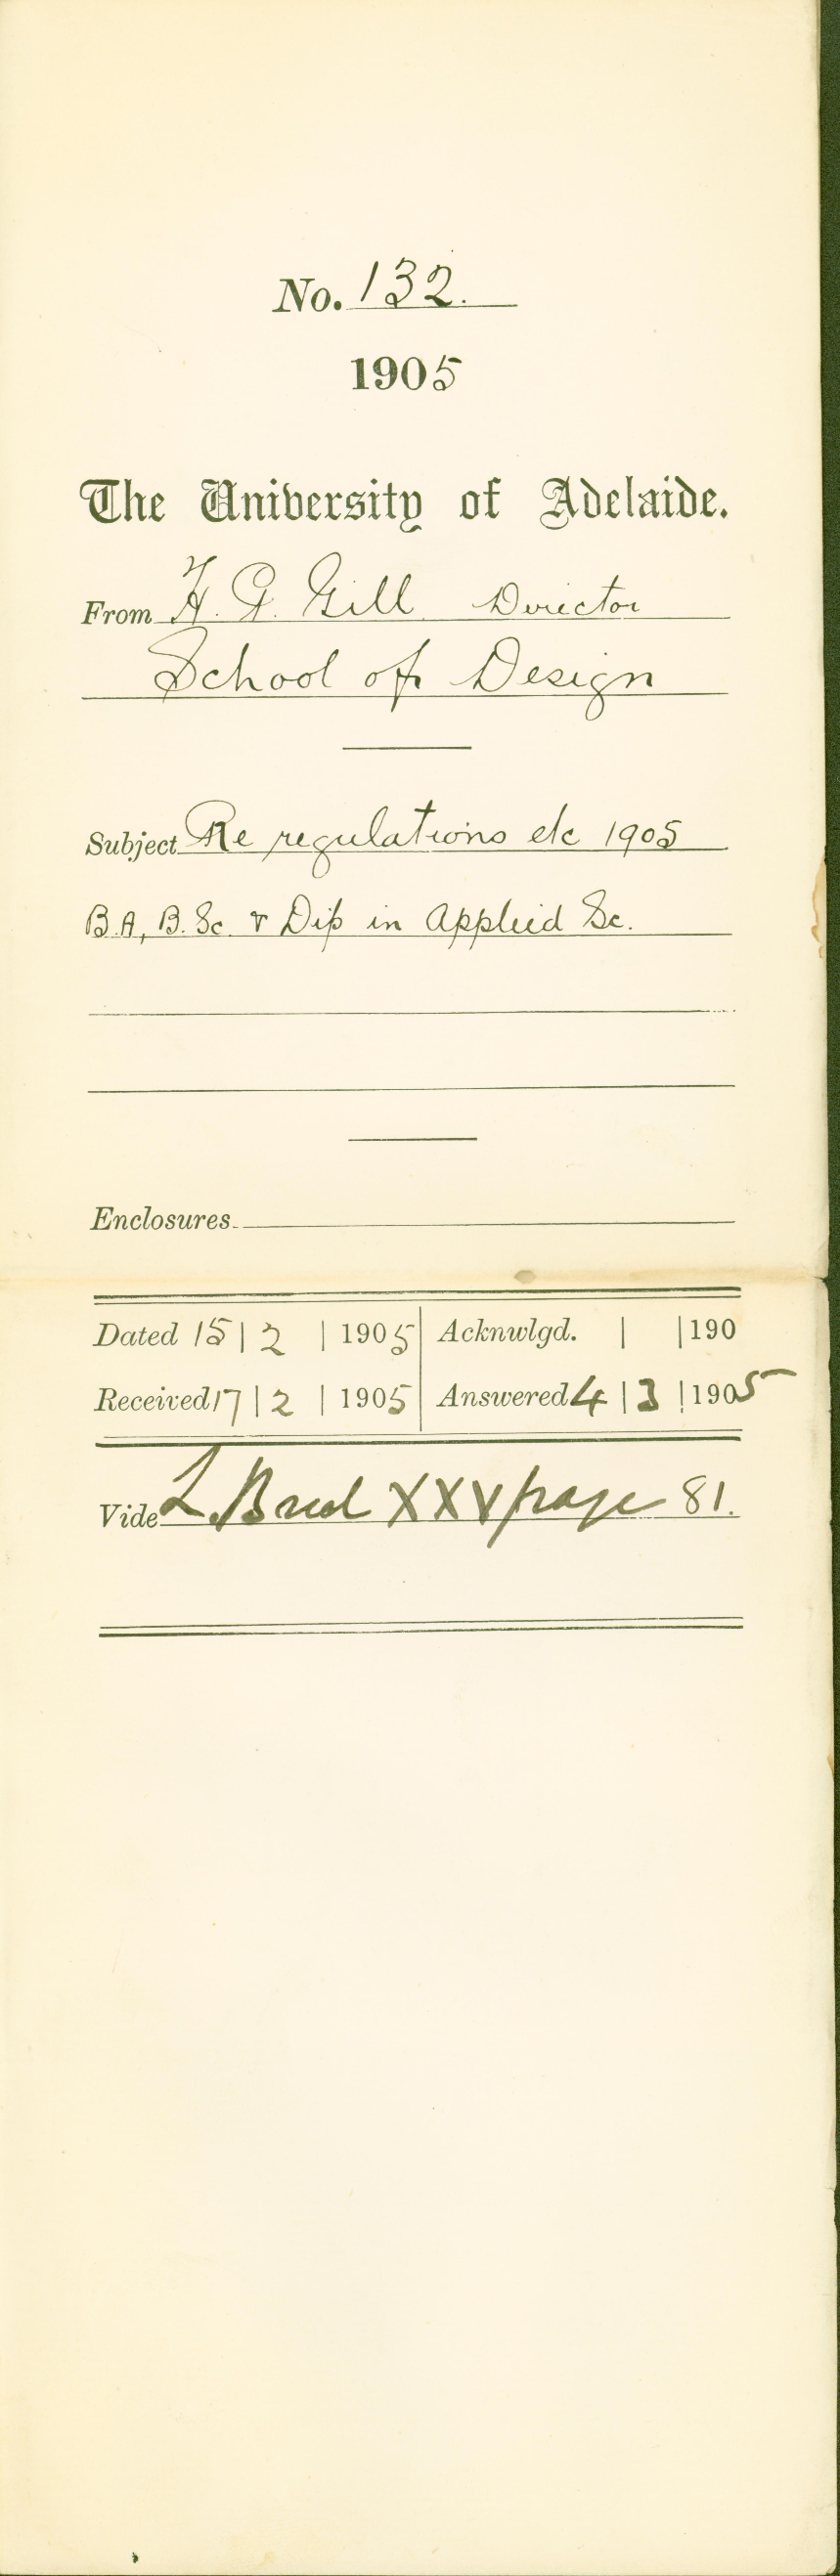 No. 132.
1905
The University of Adelaide.
From H. P. Gill Director
School of Design
Subject Re regulations etc 1905
B.A, B.Sc. & Dip in Applied Sc.
Enclosures
Dated 15|2 | 1905 Acknwlgd. | |190
Received 17|2 | 1905 Answered 4|3|1905
Vide L XXV page 81.